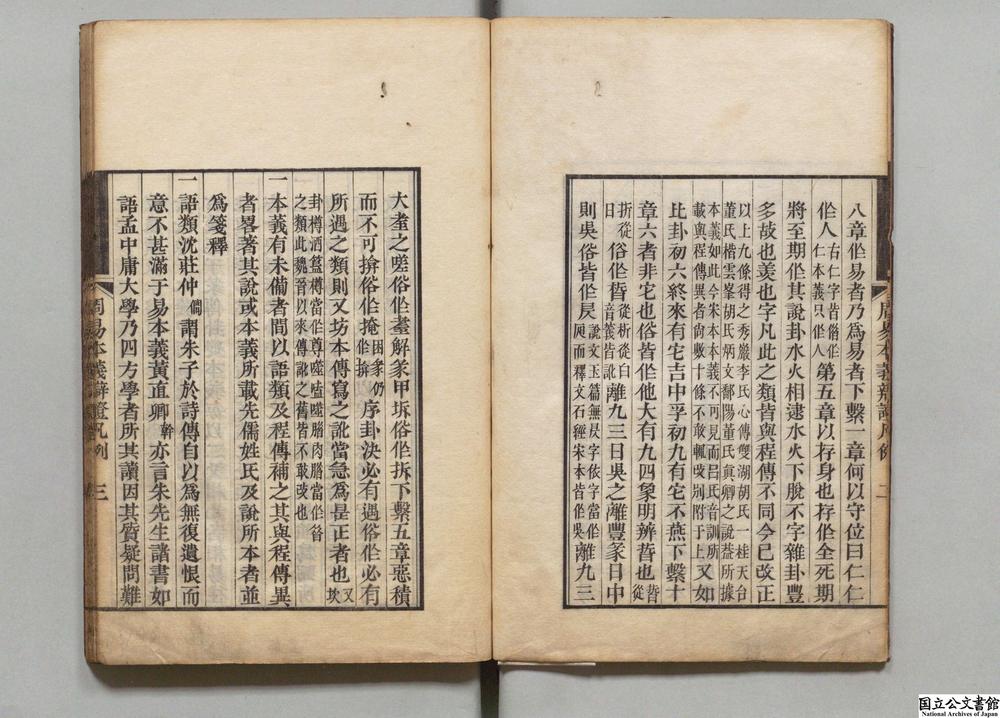 八章作易者乃爲易者下繫一章何以守位曰仁仁
作人右仁字皆俗作仁本義只作人第五章以存身也存作全死期
將至期作其說卦水火相逮水火下脫不字雜卦豐
多故也羡也字凡此之類皆與程傳不同今已改正
以上九條得之秀巖李氏心傳雙湖胡氏一桂天台
董氏楷雲峯胡氏炳文鄱陽董氏眞卿之說葢所據
本義如此今宋本本義不可見而呂氏音訓所
載與程傳異者尙數十條不敢輒改别附于上又如
比卦初六終來有它吉中孚初九有它不燕下繫十
章六者非它也俗皆作他大有九四象明辨晳也晳從
折從日俗作晢從析從白音義皆訛離九三日昃之離豐彖日中
則昃俗皆作昗說文玉篇無昗字依字當作𣅦而釋文石經宋本皆作昃離九三
大耋之嗟俗作耊解彖甲坼俗作拆下繫五章惡積
而不可揜俗作掩困彖仍作揜序卦決必有遇俗作必有
所遇之類則又坊本傳寫之訛當急爲是正者也又坎
卦樽酒簋樽當作尊噬嗑噬腊肉腊當作昔
之類此魏晉以來傳訛之舊皆不敢改也
一本義有未備者間以語類及程傳補之其與程傳異
者畧著其說或本義所載先儒姓氏及說所本者並
爲箋釋
一語類沈莊仲僩謂朱子於詩傳自以爲無復遺恨而
意不甚滿于易本義黃直卿榦亦言朱先生諸書如
語孟中庸大學乃四方學者所共讀因其質疑問難
周易本義辨證凡例 二
周易本義辨證凡例 三
国立公文書館
National Archives of Japan